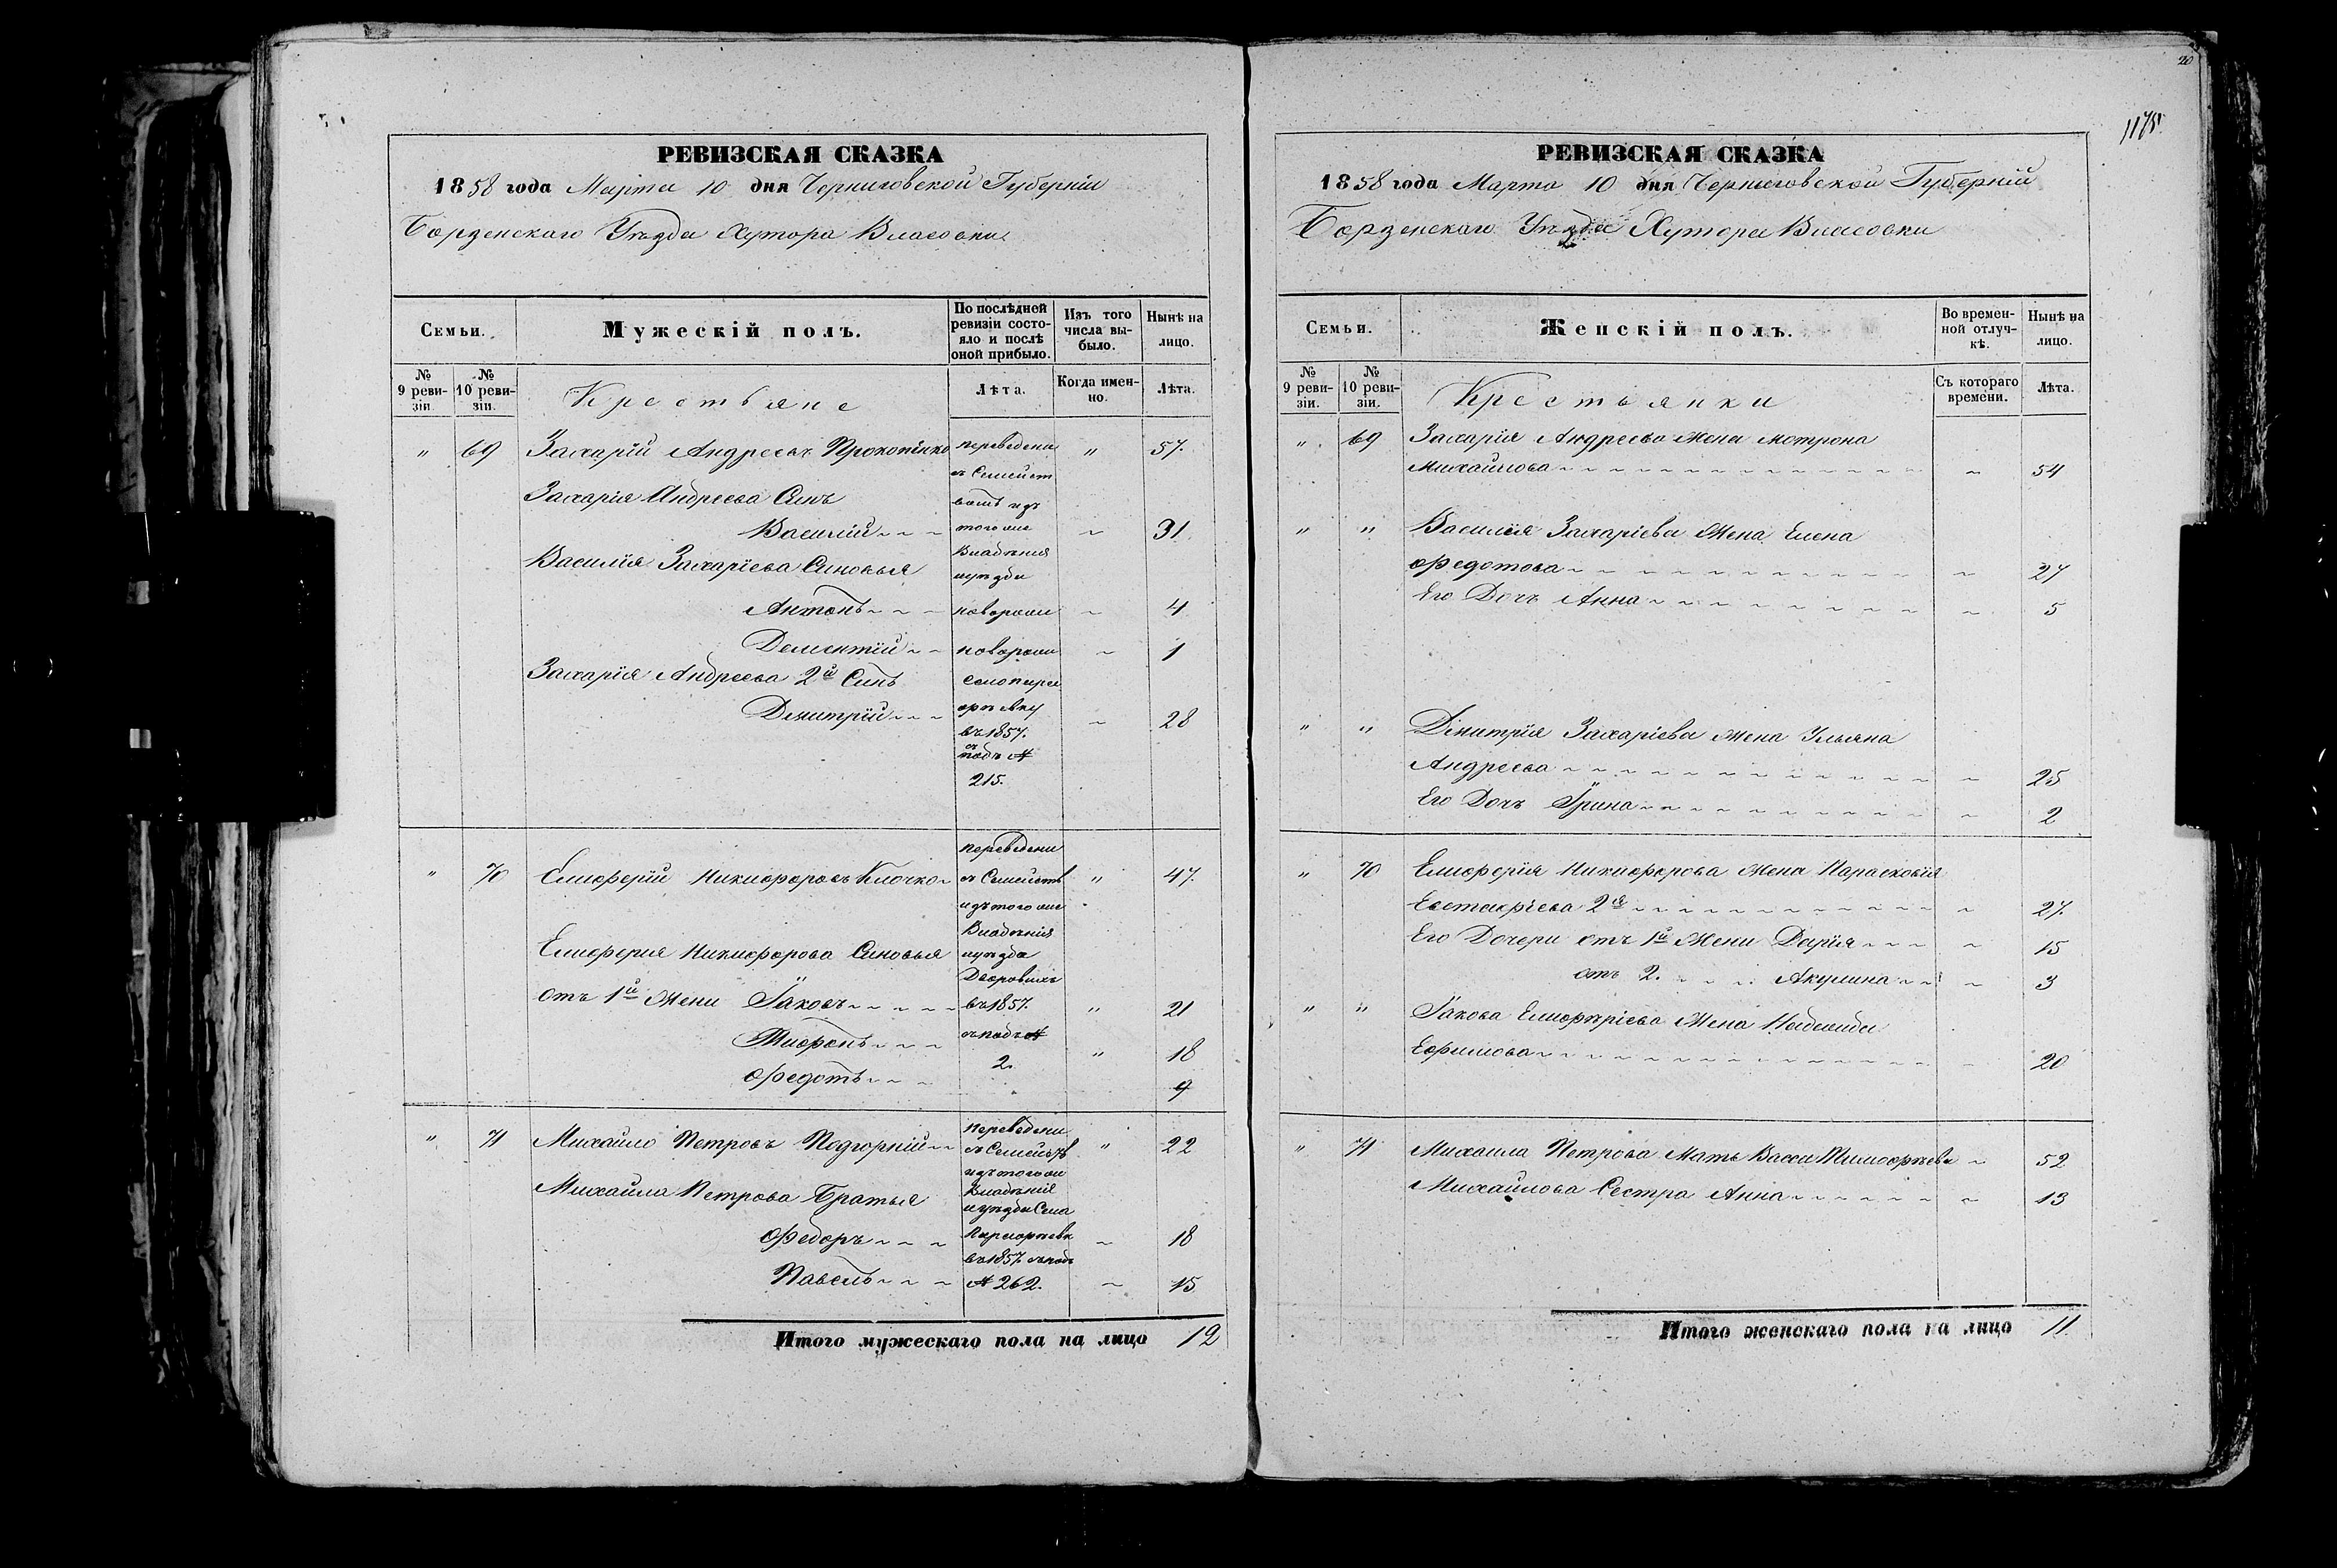 20
1175
РЕВИЗСКАЯ СКАЗКА
1858 года Марта 10 дня Черниговской Губерніи
Борзенскаго Уѣзда Хутора Власовки
Семьи.
Мужескій полъ.
По послѣдней ревизіи состояло и послѣ оной прибыло.
Изъ того числа выбыло.
Нынѣ на лицо.
№ 9 ревизіи.
№ 10 ревизіи.
Крестьяне
Лѣта.
Когда именно.
Лѣта.
" 69 Захарій Андреевъ Прокопенко переведени " 57.
съ Семейст
Захарія Андреева Синъ вомъ изъ
Василій того же ~ 31
Василія Захаріева Синовья Владѣнія
уѣзда
Антонъ новорожд ~ 4
Дементій новорожд ~ 1
Захарія Андреева 2й Синъ
Димитрій ~ 28
въ 1857.
съ
подъ №
215.
переведени
" 70 Елиоферій Никиофоровъ Клочко съ Семейств " 47.
изъ того же
Владѣнія
Елиоферия Никиофорова Синовья уѣзда
Дворовихъ
отъ 1й Жени Іаковъ въ 1857. " 21
съ подъ №
Тиофонъ 2. " 18
Офедотъ 9
переведени
" 71 Михайло Петровъ Подгорній съ Семейств " 22
изъ того же
Михайла Петрова Братья Владѣнія
уѣзда Села
Офедоръ ~ 18
въ 1857. съ подъ
Павелъ № 262. ~ 15
Итого мужескаго пола на лицо 12
РЕВИЗСКАЯ СКАЗКА
1858 года Марта 10 дня Черниговской Губерній
Борзенскаго Уѣзда Хутора Власовки
Семьи.
Женскій полъ.
Во временной отлучкѣ.
Нынѣ на лицо.
№ 9 ревизіи.
№ 10 ревизіи.
Крестьянки
Съ котораго времени.
Лѣта.
" 69 Захарія Андреева Жена Мотрона
Михайлова ~ 54
" " Василія Захаріева Жена Елена
Офедотова ~ 27
Его Дочъ Анна ~ 5
" " Димитрія Захаріева Жена Ульяна
Андреева ~ 25
Его Дочъ Ірина ~ 2
" 70 Елиоферія Никиофорова Жена Парасковія
Евстаофіева 2я ~ 27.
Его Дочери отъ 1й Жени Дарія ~ 15
отъ 2. Акулина ~ 3
" " Іакова Елиофѣріева Жена Надежда
Еофимова 20
" 71 Михаила Петрова Мать Васса Тимоофѣева ~ 52
Михайлова Сестра Анна ~ 13
Итого женскаго пола на лицо 11